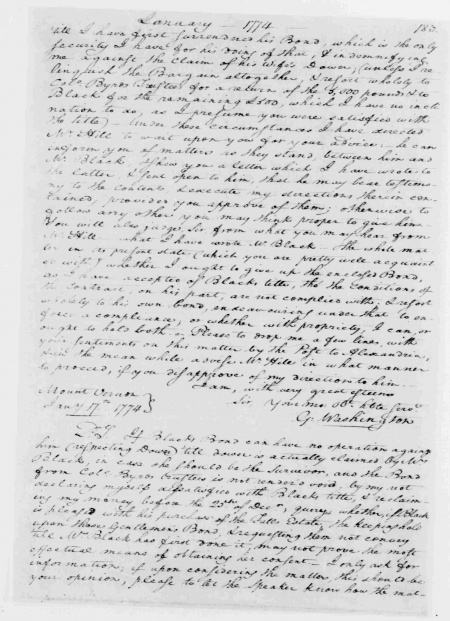 January — 1774 — 185.
till I have first surrendered his Bond, which is the only
security I have for his doing of that, & indemnifying
me against the Claim of his Wife's Dower, (unless I re-
linquish the Bargain altogether, & resort wholely to
Colo. Byrds Trustees for a return of the £ 5,000 pounds & to
Black for the remaining £500, which I have no incli-
nation to do, as I presume you were satisfied with
the title) — Under these circumstances I have directed
Mr. Hill to wait upon you for your advice. he can
inform you of matters as they stand between him and
Mr. Black, & shew you a letter which I have wrote to
the latter, & sent open to him, that he may bear testimo-
ny to the contents & execute my directions therein con-
tained, provided you approve of them; otherwise to
follow any other you may think proper to give him.
You will also judge Sir from what you may hear from
Mr. Hill — what I have wrote Mr. Black — & the whole mat-
ter in its present state (which you are pretty well acquaint-
ed with) whether I ought to give up the enclosed Bond,
as I have accepted of Blacks title, tho the Conditions of
the Contract, on his part, are not complied with, & resort
wholely to his own bond, endeavouring under that to en-
force a compliance; or whether with propriety, I can, or
ought to hold both. — Please to drop me a few lines, with
your sentiments on this matter by the Post to Alexandria,
& in the mean while advise Mr. Hill in what manner
to proceed, if you disapprove of my directions to him. —
I am, with very great esteem
Sir Your most Obt. Hble Servt.
G. Washington
Mount Vernon
Jany 17th 1774
P.S. If Blacks Bond can have no operation against
him (respecting Dower) till dower is actually claimed by Mrs.
Black, in case she should be the Survivor, and the Bond
from Colo. Byrds trustees is not render'd void, by my not
declaring myself dissatisfied with Blacks title, & reclaim-
ing my money before the 25th of Decr., query whether, if Black
is pleased with his purchase of the Falls Estate, the keeping hold
upon those Gentlemens Bond, & requesting them not convey
till Mr. Black has first done it, may not prove the most
effectual means of obtaining her consent — I only ask for
information; if upon considering the matter, this should be
your opinion, please to let the Speaker know how the mat-